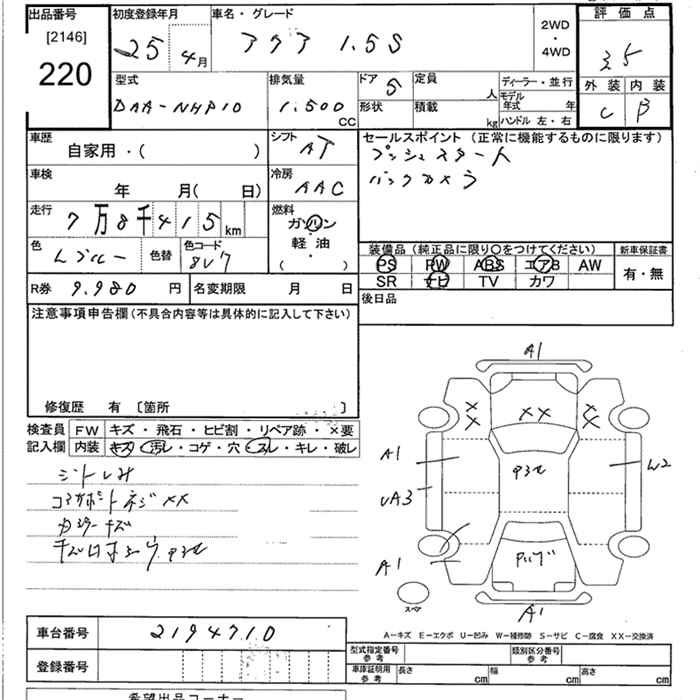 出品番号
[2146]
220
初度登録年月
25年 4月
車名・グレード
アクア 1.5S
2WD
・
4WD
評価点
3.5
外装 内装
C B
型式
DAA-NHP10
排気量
1.500 CC
ドア 5
形状
定員 人
積載 kg
ディーラー・並行
モデル年式 年
ハンドル 左・右
車歴
自家用・( )
シフト
AT
セールスポイント (正常に機能するものに限ります)
プッシュスタート
バックカメラ
車検
年 月( 日)
冷房
AAC
走行
7万8千415km
燃料
ガソリン
・
軽・油
( )
色
Lブルー
色替
色コード
8V7
装備品(純正品に限り○をつけてください)
PS PW ABS エアB AW
SR ナビ TV カワ
新車保証書
有・無
R券 9.980 円
名変期限 月 日
後日品
注意事項申告欄(不具合内容等は具体的に記入して下さい)
修復歴 有 〔箇所 〕
検査員記入欄
FW キズ・飛石・ヒビ割・リペア跡・×要
内装 キズ・汚レ・コゲ・穴・スレ・キレ・破レ
A1
××
××
××
A1
UA3
W2
A1
A1
スペア
車台番号 2194710
登録番号
A-キズ E-エクボ U-凹み W-補修跡 S-サビ C-腐食 XX-交換済
型式指定番号 参考
類別区分番号 参考
車庫証明用 参考
長さ cm 幅 cm 高さ cm
希望出品コーナー